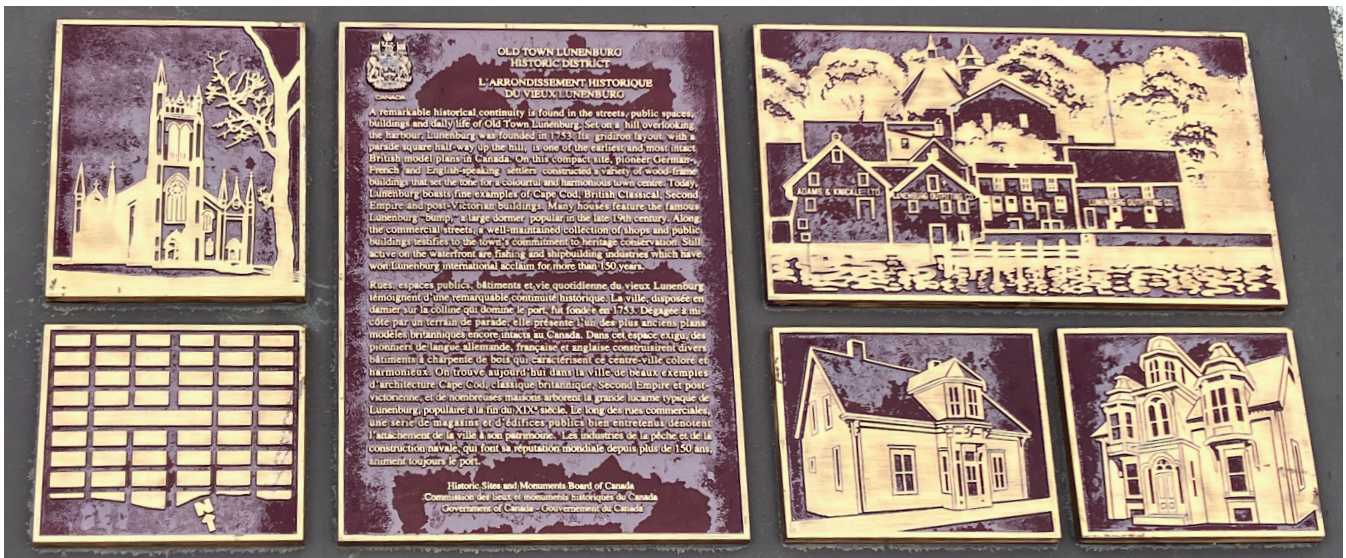 CANADA
OLD TOWN LUNENBURG
HISTORIC DISTRICT
L'ARRONDISSEMENT HISTORIQUE
DU VIEUX LUNENBURG
A remarkable historical continuity is found in the streets, public spaces,
buildings and daily life of Old Town Lunenburg. Set on a hill overlooking
the harbour, Lunenburg was founded in 1753. Its gridiron layout, with a
parade square half-way up the hill, is one of the earliest and most intact
British model plans in Canada. On this compact site, pioneer German-,
French and English-speaking settlers constructed a variety of wood-frame
buildings that set the tone for a colourful and harmonious town centre. Today,
Lunenburg boasts fine examples of Cape Cod, British Classical, Second
Empire and post-Victorian buildings. Many houses feature the famous
Lunenburg "bump," a large dormer popular in the late 19th century. Along
the commercial streets, a well-maintained collection of shops and public
buildings testifies to the town's commitment to heritage conservation. Still
active on the waterfront are fishing and shipbuilding industries which have
won Lunenburg international acclaim for more than 150 years.
Rues, espaces publics, bâtiments et vie quotidienne du vieux Lunenburg
témoignent d'une remarquable continuité historique. La ville, disposée en
damier sur la colline qui domine le port, fut fondée en 1753. Dégagée à mi-
côte par un terrain de parade, elle présente l'un des plus anciens plans
modèles britanniques encore intacts au Canada. Dans cet espace exigu, des
pionniers de langue allemande, française et anglaise construisirent divers
bâtiments à charpente de bois qui caractérisent ce centre-ville coloré et
harmonieux. On trouve aujourd'hui dans la ville de beaux exemples
d'architecture Cape Cod, classique britannique, Second Empire et post-
victorienne, et de nombreuses maisons arborent la grande lucarne typique de
Lunenburg, populaire à la fin du XIXe siècle. Le long des rues commerciales,
une série de magasins et d'édifices publics bien entretenus dénotent
l'attachement de la ville à son patrimoine. Les industries de la pêche et de la
construction navale, qui font sa réputation mondiale depuis plus de 150 ans,
animent toujours le port.
Historic Sites and Monuments Board of Canada
Commission des lieux et monuments historiques du Canada
Government of Canada - Gouvernement du Canada
ADAMS & KNICKLE LTD.
LUNENBURG OUTFITTING CO.
LUNENBURG OUTFITTING CO.
N